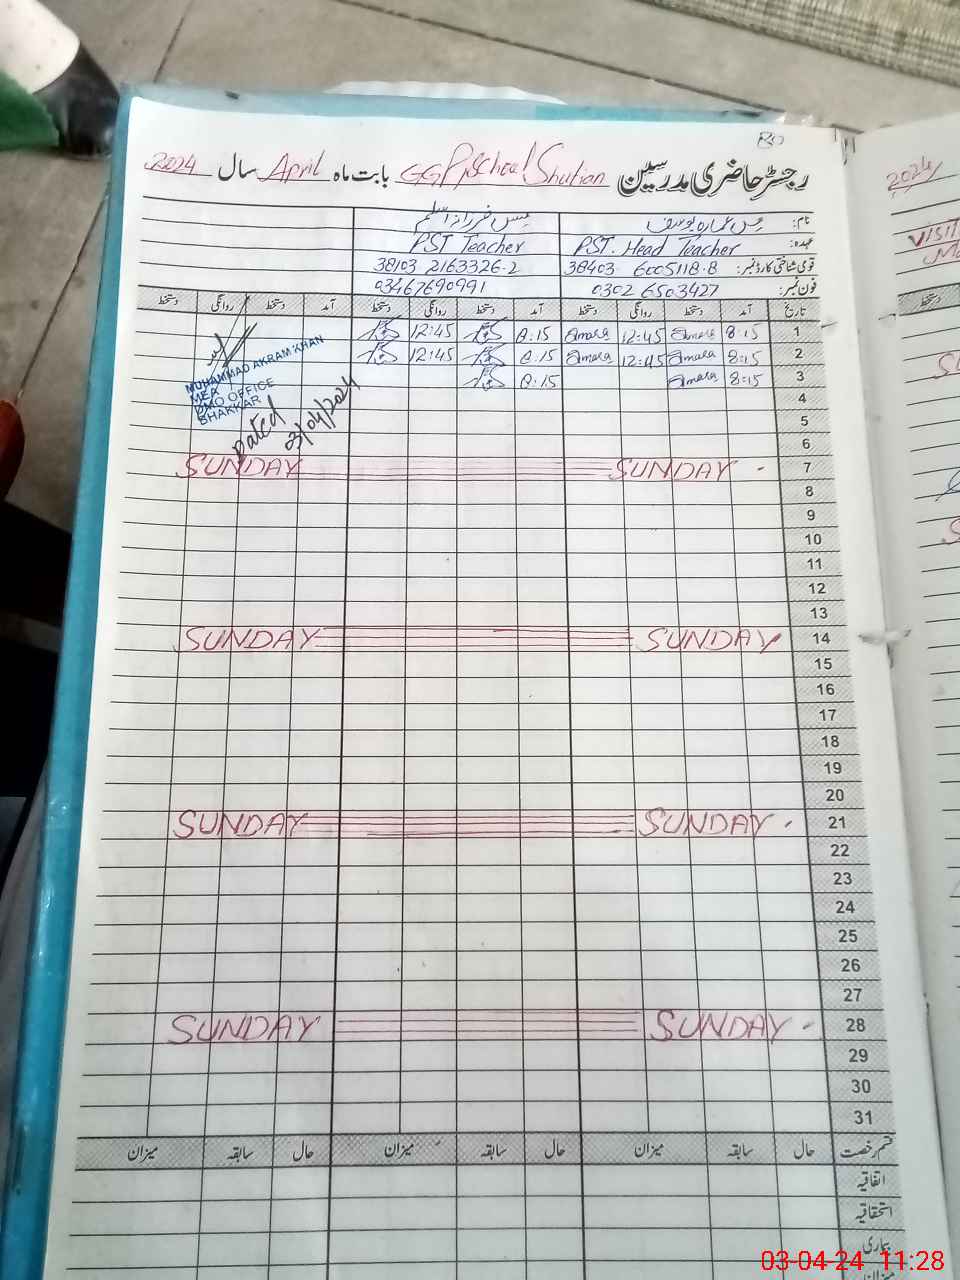 رجسٹر حاضری مدرسین GGP/School Shutian بابت ماہ April سال 2024
نام: مس عمارہ یوسف مس فرزانہ اسلم
عہدہ: PST. Head Teacher PST Teacher
قومی شناختی کارڈ نمبر: 38403 6005118-8 38103 2163326-2
فون نمبر: 0302 6503427 03467690991
تاریخ آمد دستخط روانگی دستخط آمد دستخط روانگی دستخط آمد دستخط روانگی دستخط
1 8:15 Amara 12:45 Amara 8:15 12:45
2 8:15 Amara 12:45 Amara 8:15 12:45
3 8:15 Amara 8:15
MUHAMMAD AKRAM KHAN
MEA
DMO OFFICE
BHAKKAR
Dated
03/04/2024
4
5
6
7 SUNDAY SUNDAY
8
9
10
11
12
13
14 SUNDAY SUNDAY
15
16
17
18
19
20
21 SUNDAY SUNDAY
22
23
24
25
26
27
28 SUNDAY SUNDAY
29
30
31
قسم رخصت حال سابقہ میزان حال سابقہ میزان حال سابقہ میزان
اتفاقیہ
استحقاقیہ
بیماری
میزان
2024
03-04-24 11:28